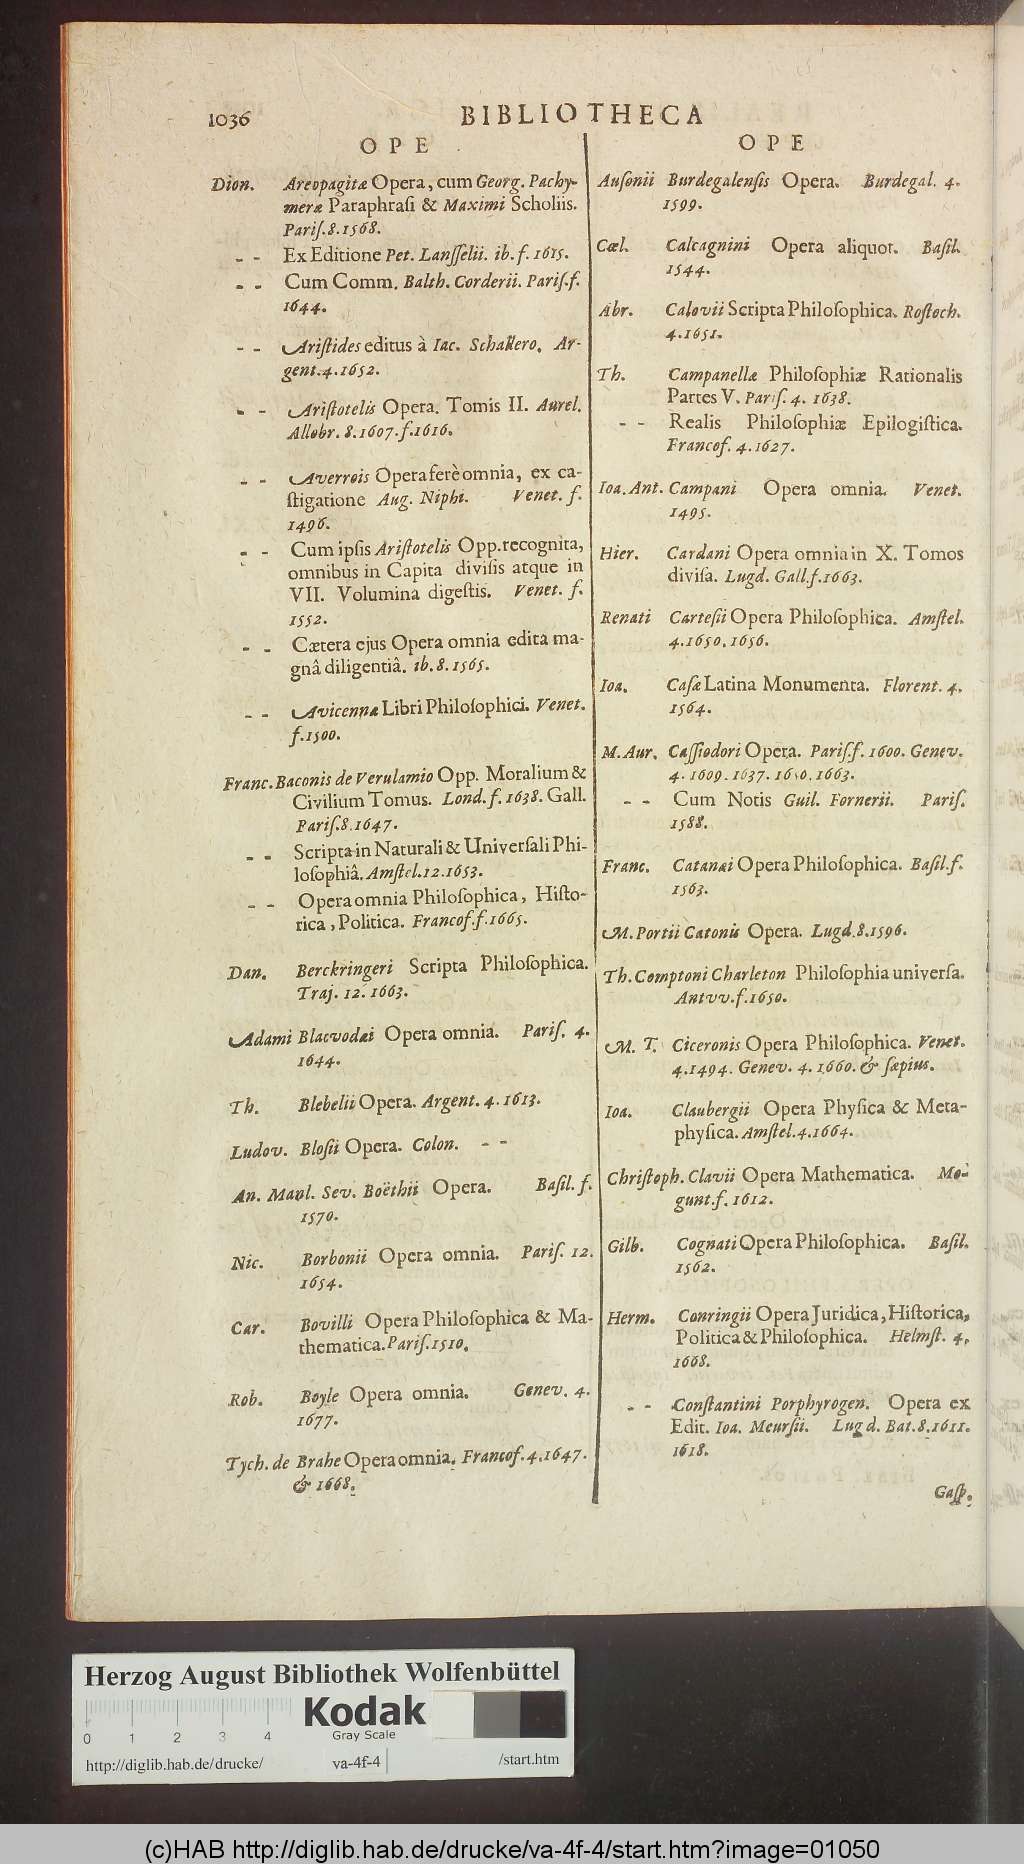 1036
BIBLIOTHECA
OPE
Dion. Areopagitæ Opera, cum Georg. Pachy-
meræ Paraphraſi & Maximi Scholiis.
Pariſ. 8. 1568.
- - Ex Editione Pet. Lanſſelii. ib. f. 1615.
- - Cum Comm. Balth. Corderii. Pariſ. f.
1644.
- - Ariſtides editus à Iac. Schallero. Ar-
gent. 4. 1652.
- - Ariſtotelis Opera. Tomis II. Aurel.
Allobr. 8. 1607. f. 1616.
- - Averrois Opera ferè omnia, ex ca-
ſtigatione Aug. Niphi. Venet. f.
1496.
- - Cum ipſis Ariſtotelis Opp. recognita,
omnibus in Capita diviſis atque in
VII. Volumina digeſtis. Venet. f.
1552.
- - Cætera ejus Opera omnia edita ma-
gnâ diligentiâ. ib. 8. 1565.
- - Avicennæ Libri Philoſophici. Venet.
f. 1500.
Franc. Baconis de Verulamio Opp. Moralium &
Civilium Tomus. Lond. f. 1638. Gall.
Pariſ. 8. 1647.
- - Scripta in Naturali & Univerſali Phi-
loſophiâ. Amſtel. 12. 1653.
- - Opera omnia Philoſophica, Hiſto-
rica, Politica. Francof. f. 1665.
Dan. Berckringeri Scripta Philoſophica.
Traj. 12. 1663.
Adami Blacvodæi Opera omnia. Pariſ. 4.
1644.
Th. Blebelii Opera. Argent. 4. 1613.
Ludov. Bloſii Opera. Colon. - -
An. Manl. Sev. Boëthii Opera. Baſil. f.
1570.
Nic. Borbonii Opera omnia. Pariſ. 12.
1654.
Car. Bovilli Opera Philoſophica & Ma-
thematica. Pariſ. 1510.
Rob. Boyle Opera omnia. Genev. 4.
1677.
Tych. de Brahe Opera omnia. Francof. 4. 1647.
& 1668.
OPE
Auſonii Burdegalenſis Opera. Burdegal. 4.
1599.
Cæl. Calcagnini Opera aliquot. Baſil.
1544.
Abr. Calovii Scripta Philoſophica. Roſtoch.
4. 1651.
Th. Campanellæ Philoſophiæ Rationalis
Partes V. Pariſ. 4. 1638.
- - Realis Philoſophiæ Epilogiſtica.
Francof. 4. 1627.
Ioa. Ant. Campani Opera omnia. Venet.
1495.
Hier. Cardani Opera omnia in X. Tomos
diviſa. Lugd. Gall. f. 1663.
Renati Carteſii Opera Philoſophica. Amſtel.
4. 1650. 1656.
Ioa. Caſæ Latina Monumenta. Florent. 4.
1564.
M. Aur. Caſſiodori Opera. Pariſ. f. 1600. Genev.
4. 1609. 1637. 1650. 1663.
- - Cum Notis Guil. Fornerii. Pariſ.
1588.
Franc. Catanæi Opera Philoſophica. Baſil. f.
1563.
M. Portii Catonis Opera. Lugd. 8. 1596.
Th. Comptoni Charleton Philoſophia univerſa.
Antvv. f. 1650.
M. T. Ciceronis Opera Philoſophica. Venet.
4. 1494. Genev. 4. 1660. & ſæpius.
Ioa. Claubergii Opera Phyſica & Meta-
phyſica. Amſtel. 4. 1664.
Chriſtoph. Clavii Opera Mathematica. Mo-
gunt. f. 1612.
Gilb. Cognati Opera Philoſophica. Baſil.
1562.
Herm. Conringii Opera Juridica, Hiſtorica,
Politica & Philoſophica. Helmſt. 4.
1668.
- - Conſtantini Porphyrogen. Opera ex
Edit. Ioa. Meurſii. Lugd. Bat. 8. 1611.
1618.
Gaſp.
Herzog August Bibliothek Wolfenbüttel
Kodak
Gray Scale
0 1 2 3 4
http://diglib.hab.de/drucke/ va-4f-4 /start.htm
(c)HAB http://diglib.hab.de/drucke/va-4f-4/start.htm?image=01050